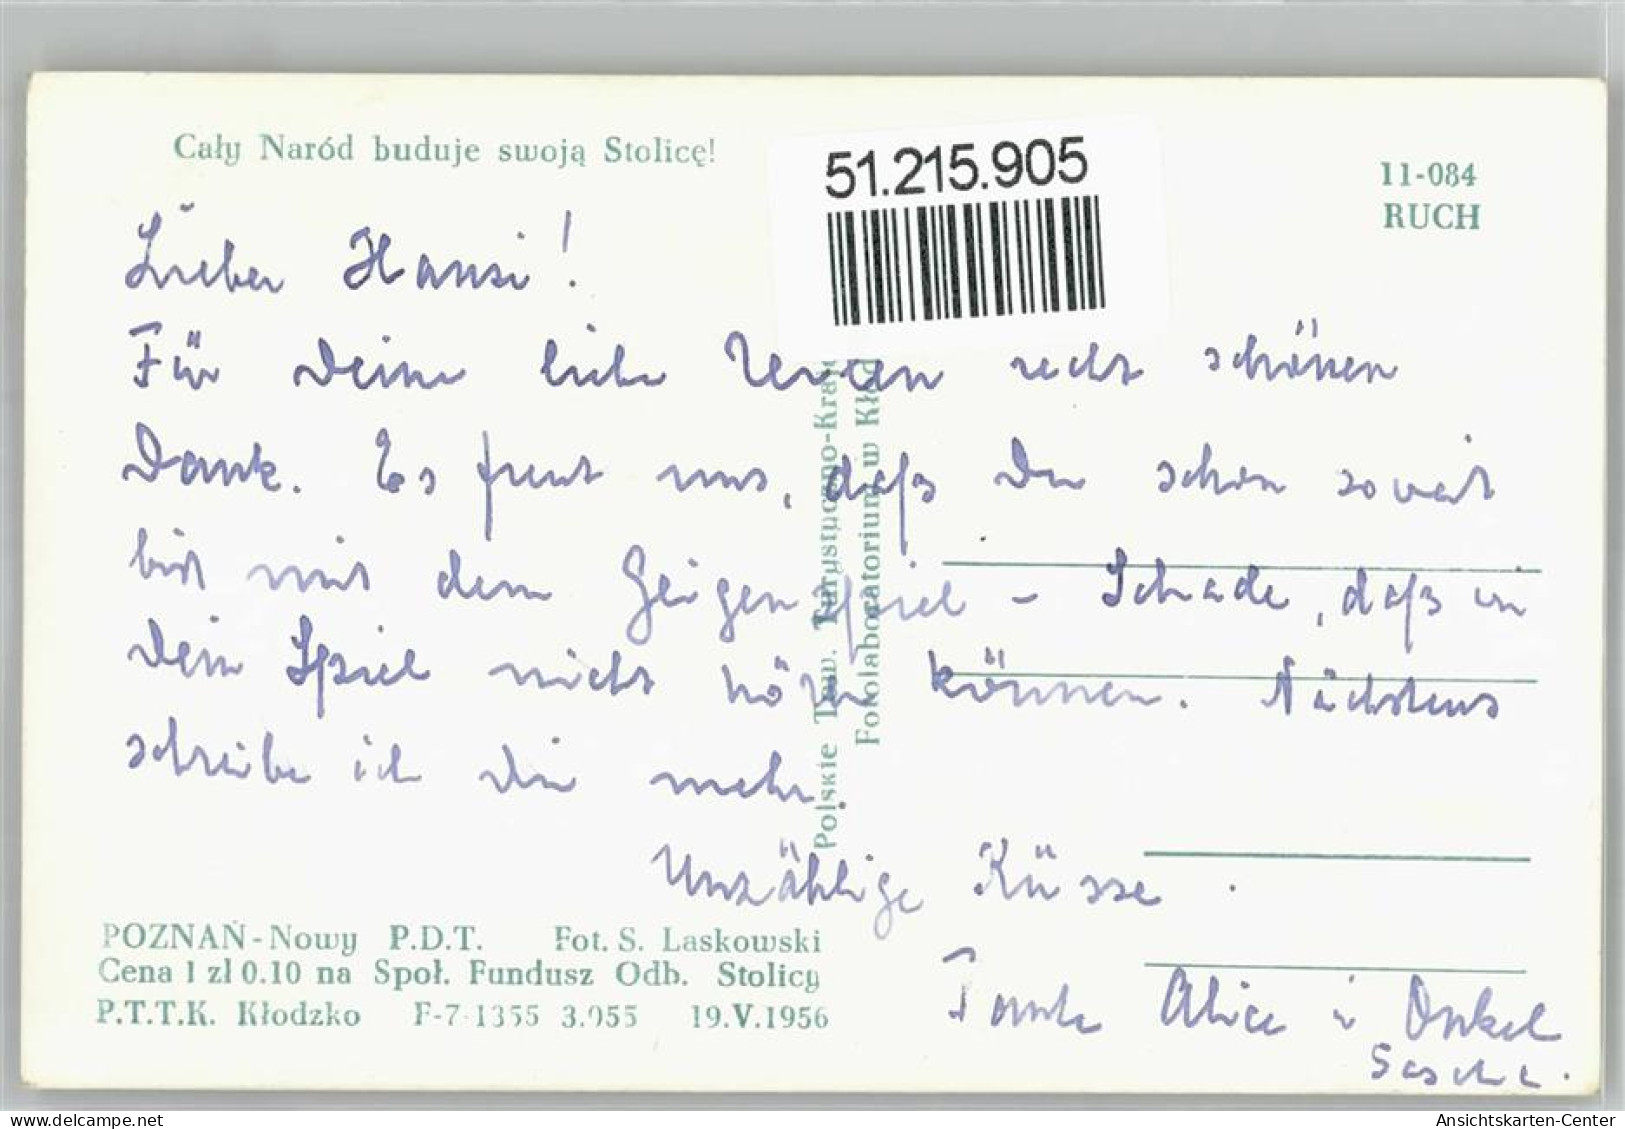 Cały Naród buduje swoją Stolicę!
51.215.905
11-084
RUCH
Lieber Hansi!
Für Deine lieben Zeilen recht schönen
Dank. Es freut uns, daß Du schon soweit
bist mit dem Geigenspiel - Schade, daß wir
Dein Spiel nicht hören können. Nächstens
schreibe ich Dir mehr.
Unzählige Küsse.
Tante Alice i Onkel
Sascha.
Polskie Tow. Turystyczno-Kraj
Fotolaboratorium w Kłod
POZNAŃ-Nowy P.D.T. Fot. S. Laskowski
Cena 1 zł 0.10 na Społ. Fundusz Odb. Stolicy
P.T.T.K. Kłodzko F-7-1355 3.055 19.V.1956
oldthing.de
Ansichtskarten-Center